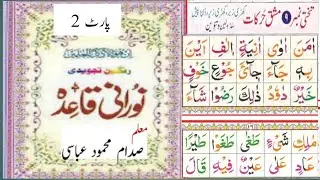 پارٹ 2
رنگین تجویدی
نورانی قاعدہ
معلم
صدام محمود عباسی
تختی نمبر ۹ مشق حرکات
اٰمَنَ اٰوٰی اٰنِیَۃٍ اَلِفَ اَیْنَ
بِہٖ جَآءَ جُوْعٍ خَوْفٍ
خَیْرٌ دٰوٗدَ ذٰلِکَ رَضُوْا شَآءَ
مٰلِکِ شَیْءٍ طَغٰی طَغَوْا طَیْرًا
عَادٍ عَلٰی عَیْنٌ فِیْہِ قَالَ